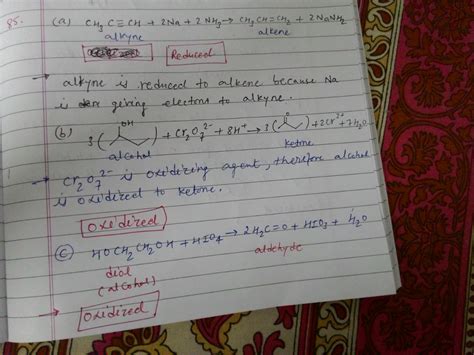 85. (a) CH₃C≡CH + 2Na + 2NH₃ → CH₃CH=CH₂ + 2NaNH₂
alkyne alkene
Reduced
→ alkyne is reduced to alkene because Na
is giving electrons to alkyne.
(b) OH O
3( ) + Cr₂O₇²⁻ + 8H⁺ → 3( ) + 2Cr³⁺ + 7H₂O
alcohol ketone
→ Cr₂O₇²⁻ is oxidizing agent, therefore alcohol
is oxidized to ketone.
Oxidized
(c) HOCH₂CH₂OH + HIO₄ → 2H₂C=O + HIO₃ + H₂O
diol aldehyde
(alcohol)
→ Oxidized